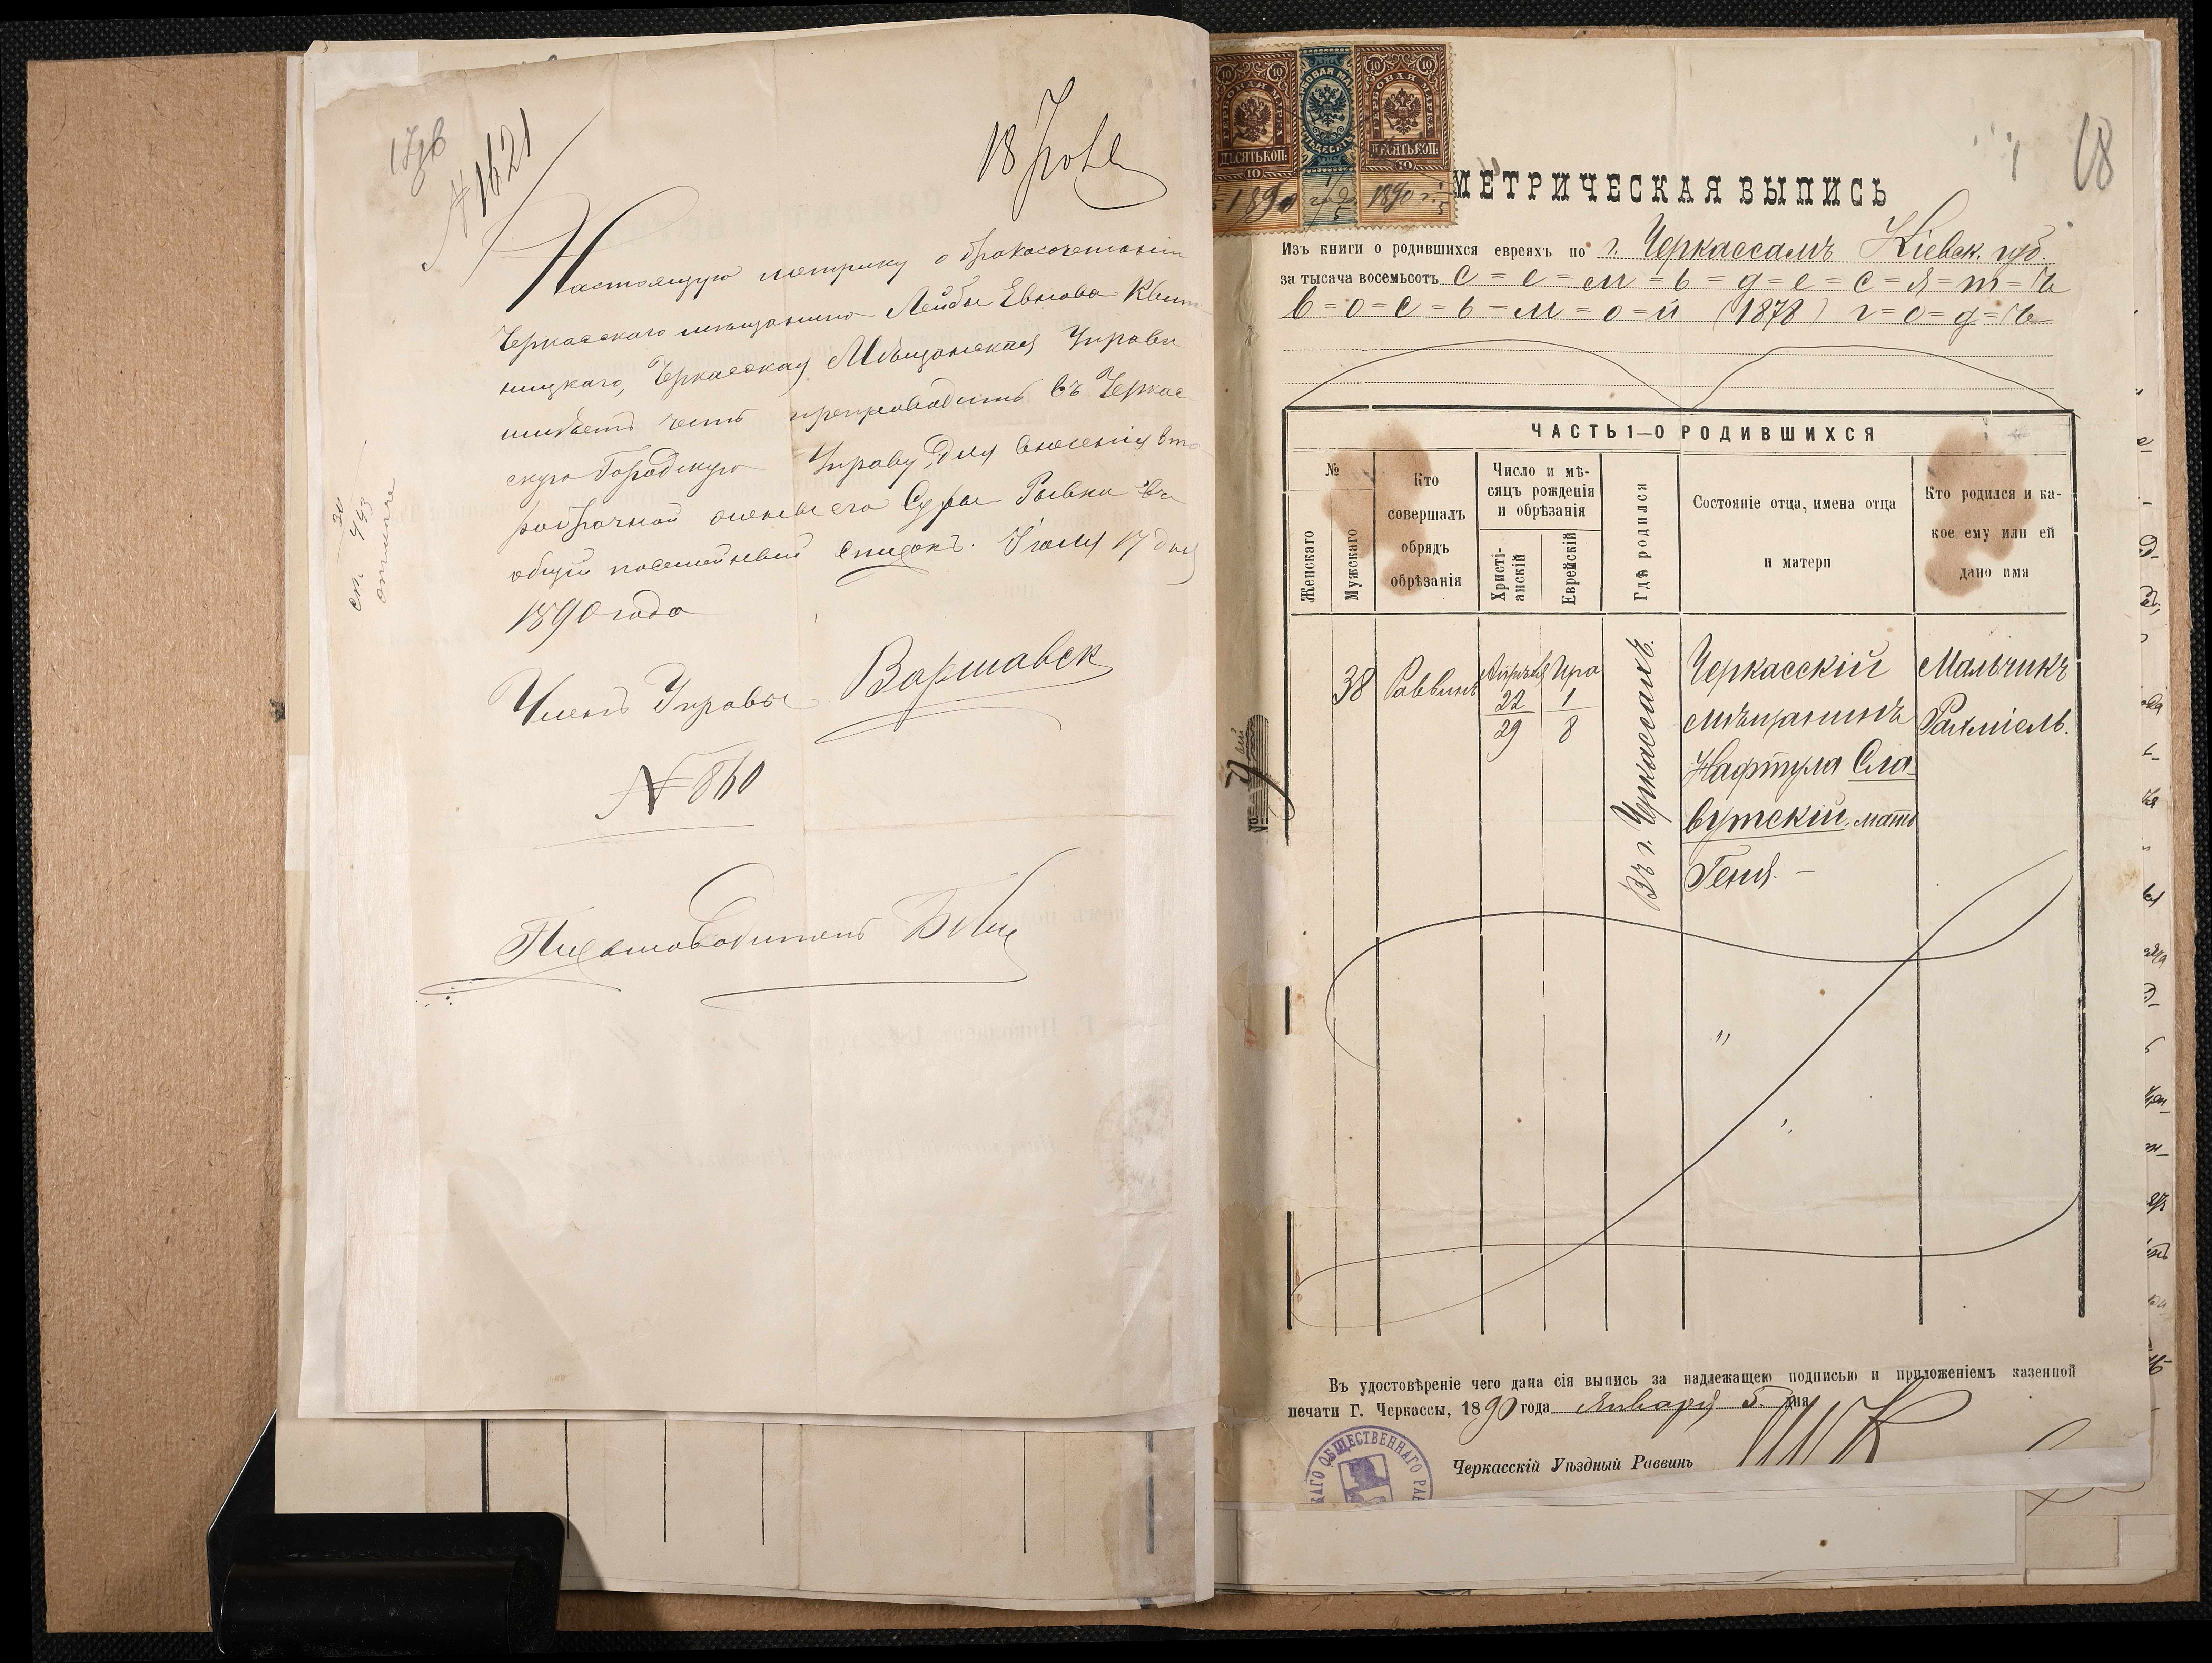 № 1621
18 Іюля
Настоящую метрику о бракосочетаніи
Черкасскаго мѣщанина Лейбы Евнова Квит
ницкаго, Черкасская Мѣщанская Управа
имѣетъ честь препроводить въ Черкас
скую Городскую Управу, для внесенія вто
робрачной жены его Суры Рывки въ
общій посемейный списокъ. Іюля 17 дня
1890 года
Членъ Управы Варшавск
№ 860
Письмоводитель
68
ДЕСЯТЬ КОП:
10
1890
ГЕРБОВАЯ МАРКА
ДЕСЯТЬ КОП:
10
1890 г.
МЕТРИЧЕСКАЯ ВЫПИСЬ
Изъ книги о родившихся евреяхъ по г. Черкассамъ Кіевск. губ.
за тысяча восемьсотъ с=е=м=ь=д=е=с=я=т=ъ
в=о=с=ь=м=о=й (1878) г=о=д=ъ
ЧАСТЬ 1—О РОДИВШИХСЯ
№
Женскаго
Мужскаго
Кто
совершалъ
обрядъ
обрѣзанія
Число и мѣ-
сяцъ рожденія
и обрѣзанія
Христі-
анскій
Еврейскій
Гдѣ родился
Состояніе отца, имена отца
и матери
Кто родился и ка-
кое ему или ей
дано имя
38
Раввинъ
Апрѣля
22
29
Іира
1
8
Въ г. Черкассахъ.
Черкасскій
мѣщанинъ
Нафтула Сла
вутскій, мать
Геня. —
Мальчикъ
Рахміель.
Въ удостовѣреніе чего дана сія выпись за надлежащею подписью и приложеніемъ казенной
печати Г. Черкассы, 1890 года Января 5 дня
Черкасскій Уѣздный Раввинъ
КАГО ОБЩЕСТВЕННАГО РАВ